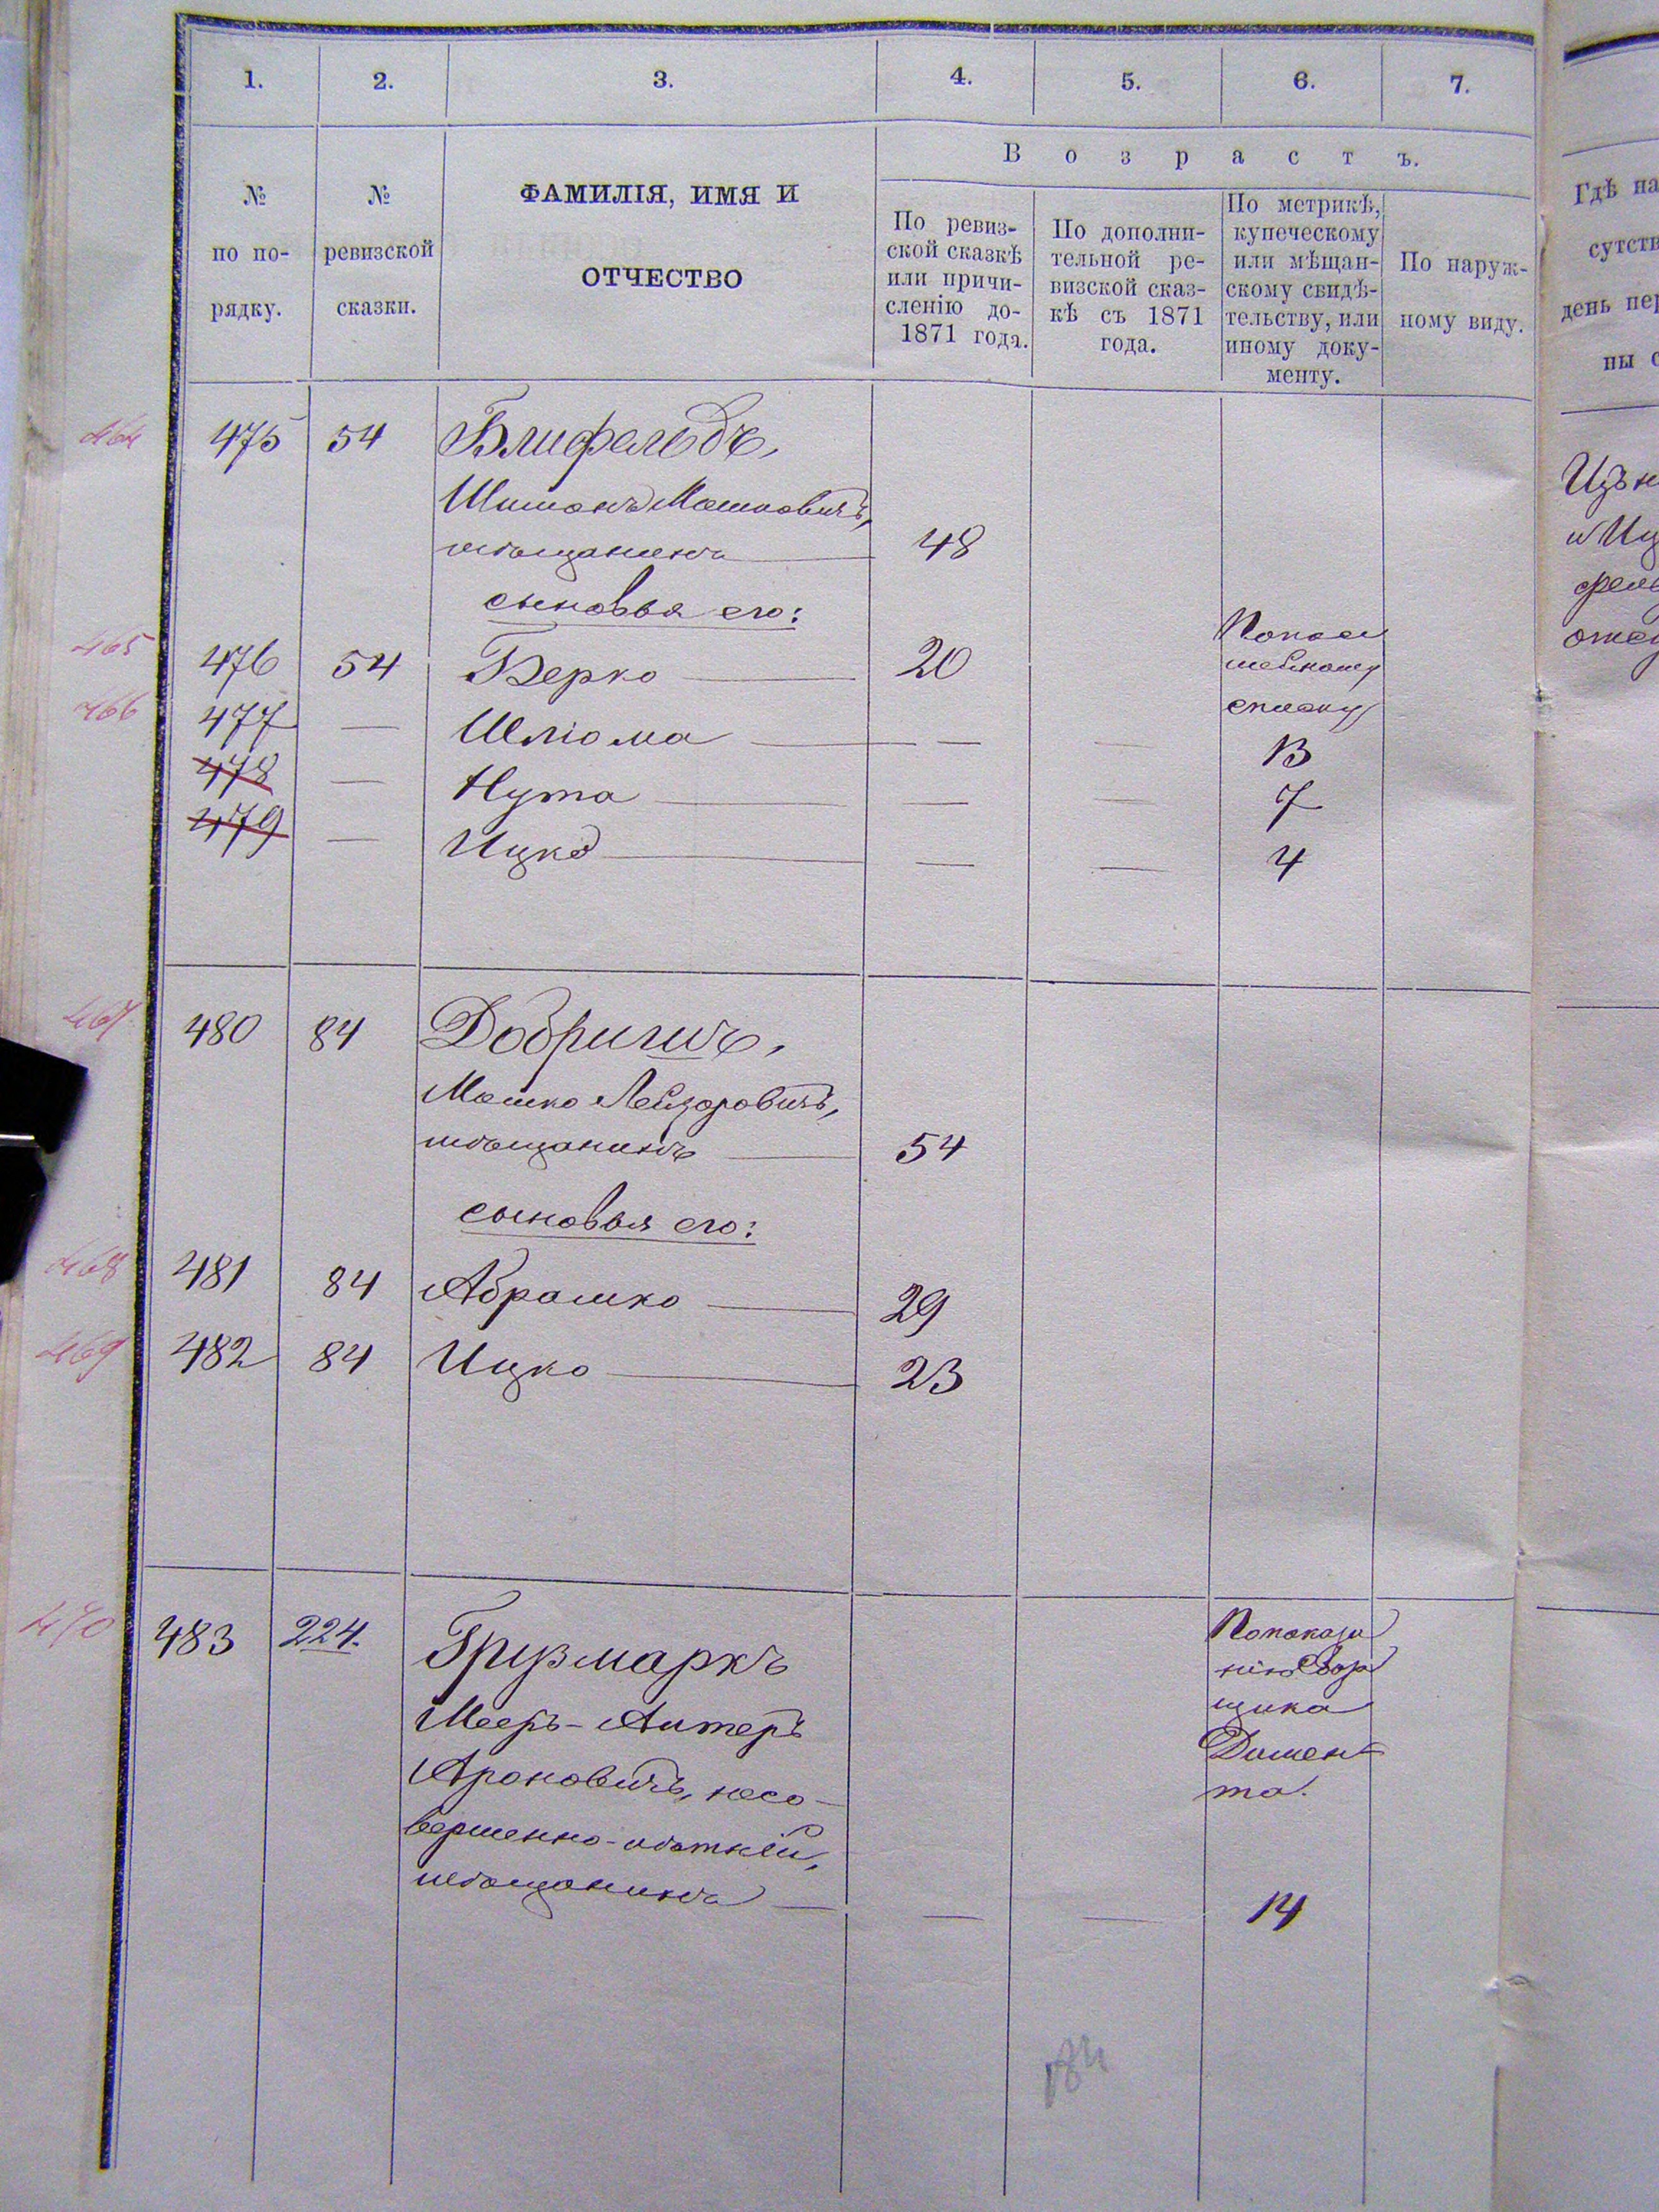 1. 2. 3. 4. 5. 6. 7.
В о з р а с т ъ.
№ по по-рядку.
№ ревизской сказки.
ФАМИЛІЯ, ИМЯ И
ОТЧЕСТВО
По ревиз-
ской сказкѣ
или причи-
сленію до-
1871 года.
По дополни-
тельной ре-
визской сказ-
кѣ съ 1871
года.
По метрикѣ,
купеческому
или мѣщан-
скому свидѣ-
тельству, или
иному доку-
менту.
По наруж-
ному виду.
Гдѣ на
сутств
день пер
ны с
464 475 54 Блифельдъ,
Шимонъ Мошковичъ,
мѣщанинъ 48
сыновья его:
По посе
мейному
списку
465 476 54 Берко 20
466 477 — Шліома — — 13
478 — Нута — — 7
479 — Ицко — — 4
467 480 84 Добригинъ,
Мошко Лейзоровичъ,
мѣщанинъ 54
сыновья его:
468 481 84 Абрашко 29
469 482 84 Ицко 23
470 483 224. Грузмаркъ
Мееръ-Алтеръ
Ароновичъ, несо-
вершенно-лѣтній,
мѣщанинъ — — 14
По показа
нію Збор
щика
Димен-
та.
184